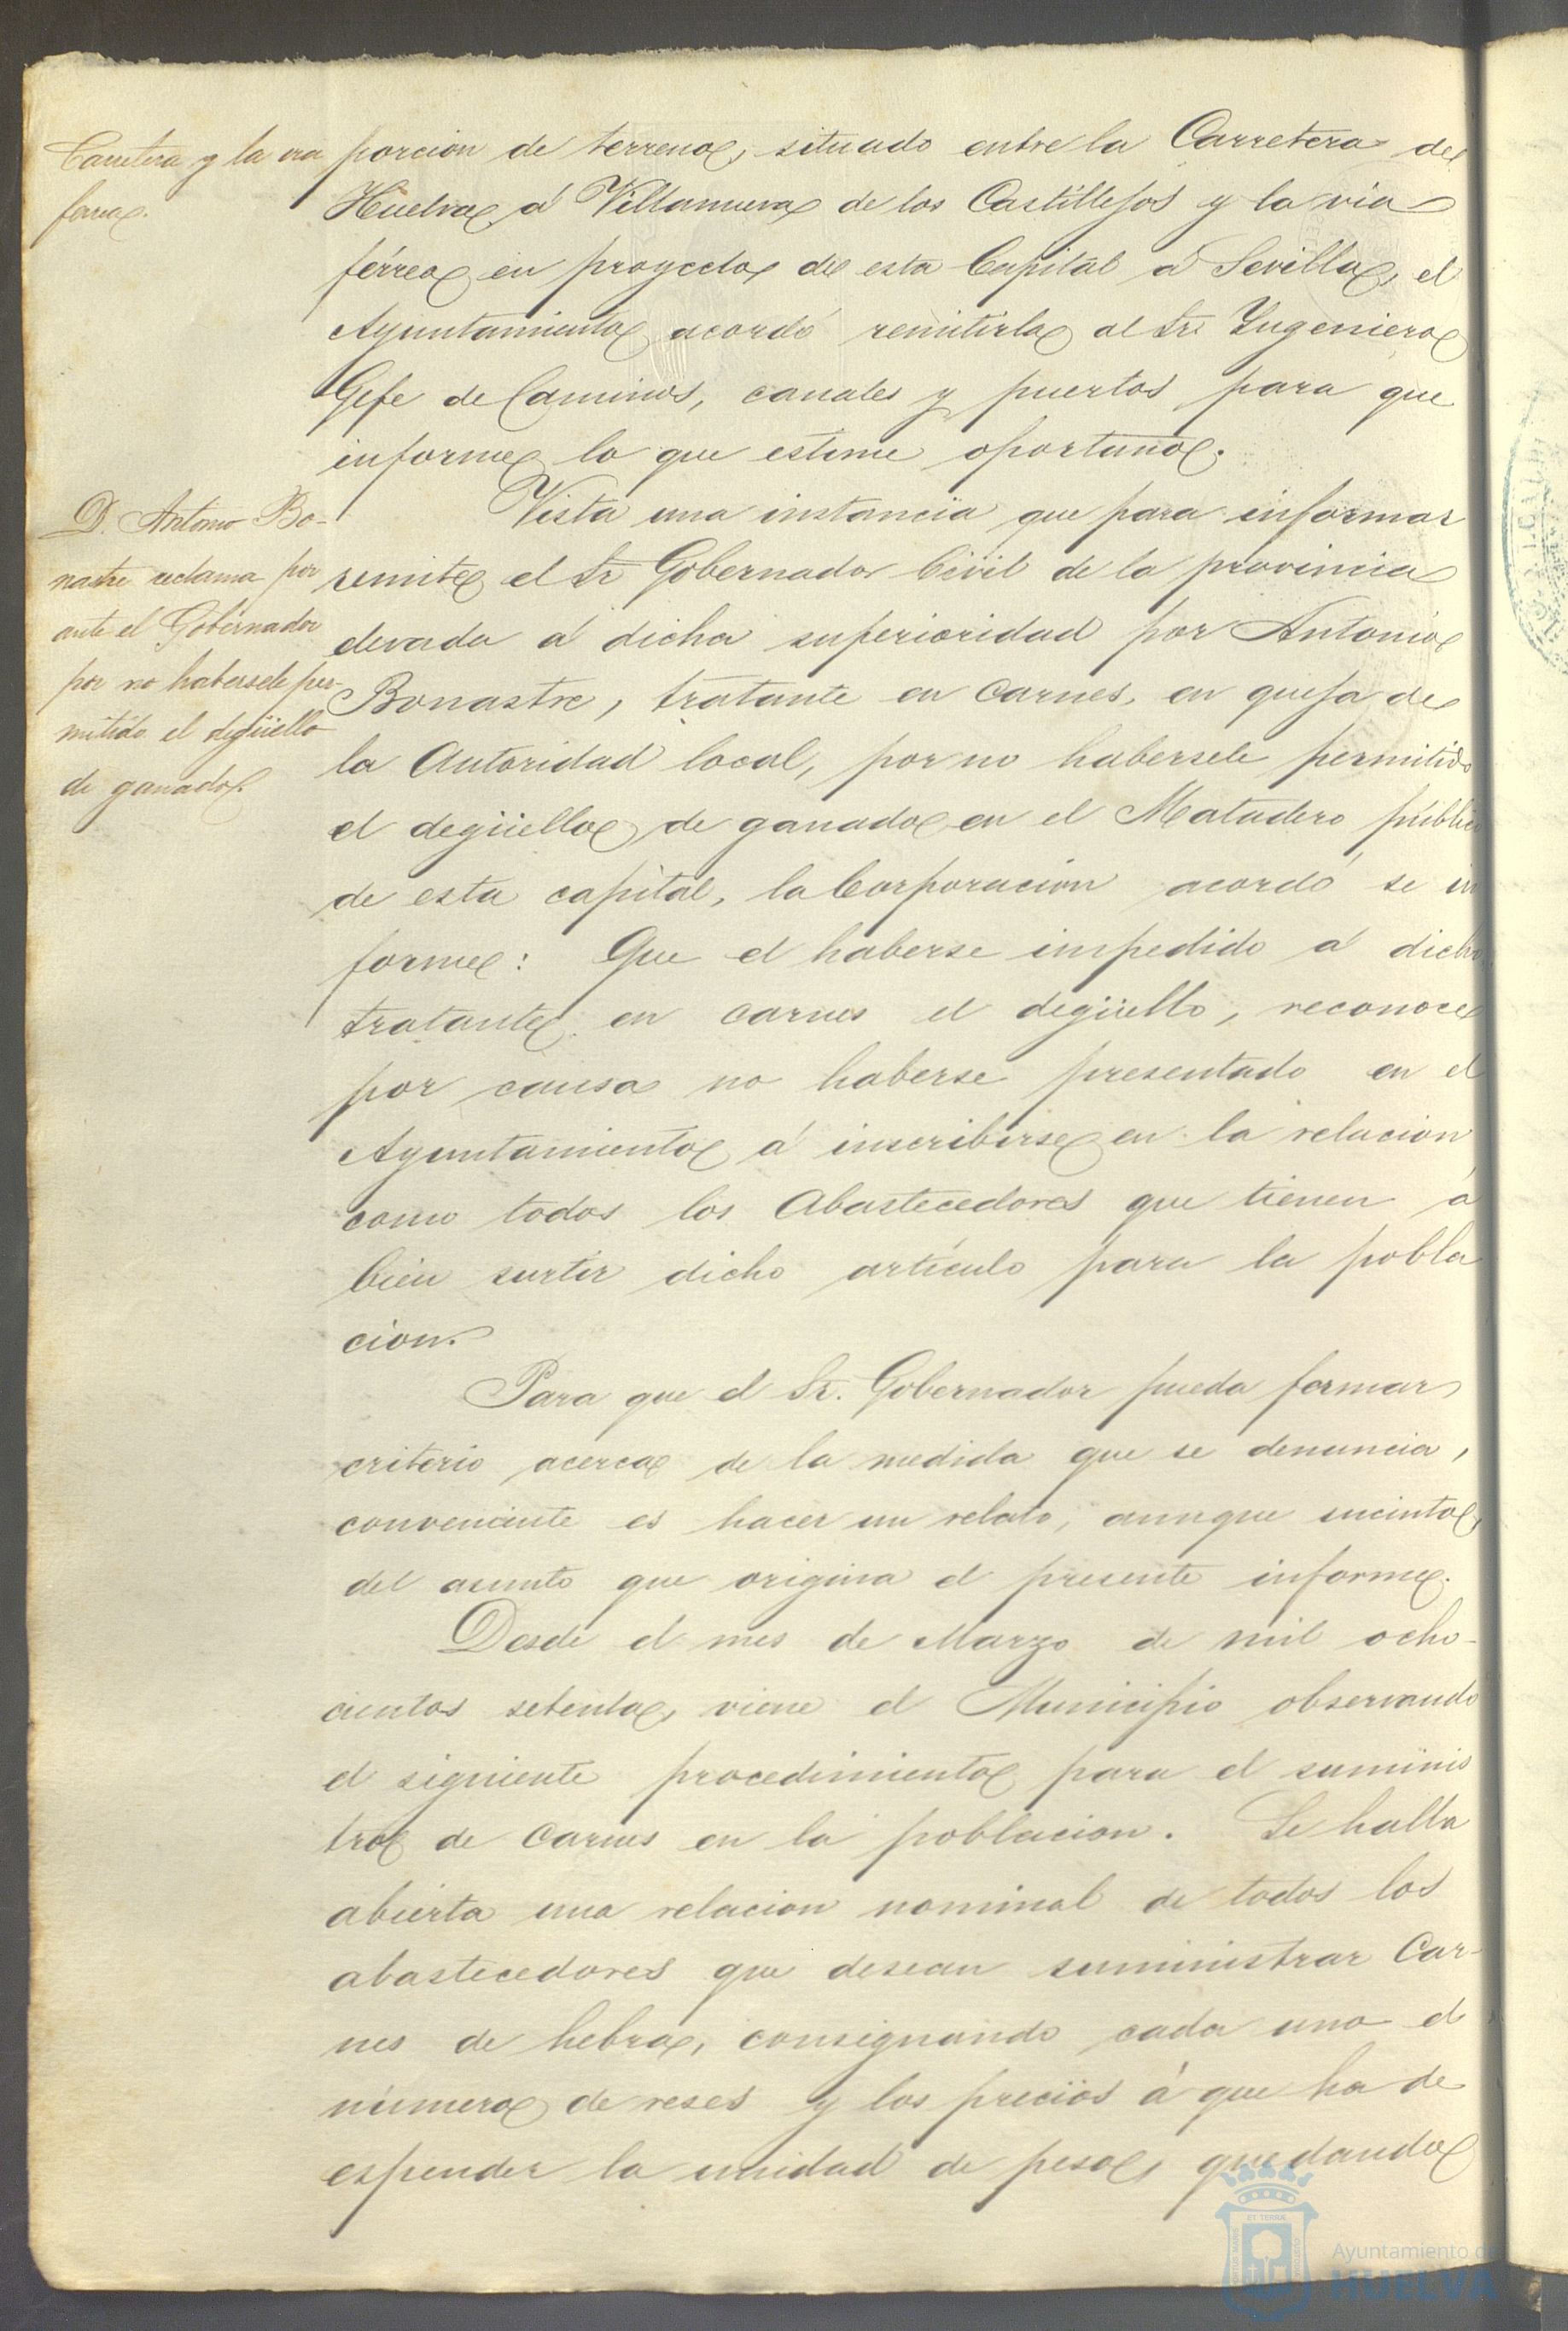 Carretera y la via
ferrea.
porcion de terreno, situado entre la Carretera de
Huelva á Villanueva de los Castillejos y la via
férrea en proyecto de esta Capital á Sevilla, el
Ayuntamiento acordó remitirla al Sr. Yngeniero
Gefe de Caminos, canales y puertos para que
informe lo que estime oportuno.
D. Antonio Bo-
nastre reclama por
ante el Gobernador
por no habersele per-
mitido el degüello
de ganado.
Vista una instancia que para informar
remite el Sr Gobernador Civil de la provincia
elevada á dicha superioridad por Antonio
Bonastre, tratante en Carnes, en queja de
la Autoridad local, por no habersele permitido
el degüello de ganado en el Matadero público
de esta capital, la Corporacion acordó se in
forme: Que el haberse impedido á dicho
tratante en carnes el degüello, reconoce
por causa no haberse presentado en el
Ayuntamiento á inscribirse en la relacion
como todos los Abastecedores que tienen á
bien surtir dicho articulo para la pobla
cion.
Para que el Sr. Gobernador pueda formar
criterio acerca de la medida que se denuncia,
conveniente es hacer un relato, aunque sucinto,
del asunto que origina el presente informe.
Desde el mes de Marzo de mil ocho-
cientos setenta, viene el Municipio observando
el siguiente procedimiento para el suminis
tro de Carnes en la poblacion. Se halla
abierta una relacion nominal de todos los
abastecedores que desean suministrar Car-
nes de hebra, consignando cada uno el
número de reses y los precios á que ha de
espender la unidad de peso, quedando
Ayuntamiento de
HUELVA